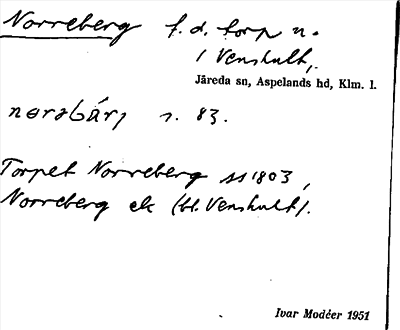 Norreberg f.d. torp u.
i Venshult,
Järeda sn, Aspelands hd, Klm. l.
s. 83.
Torpet Norreberg 1803,
Norreberg ek (bl. Venshult).
Ivar Modéer 1951